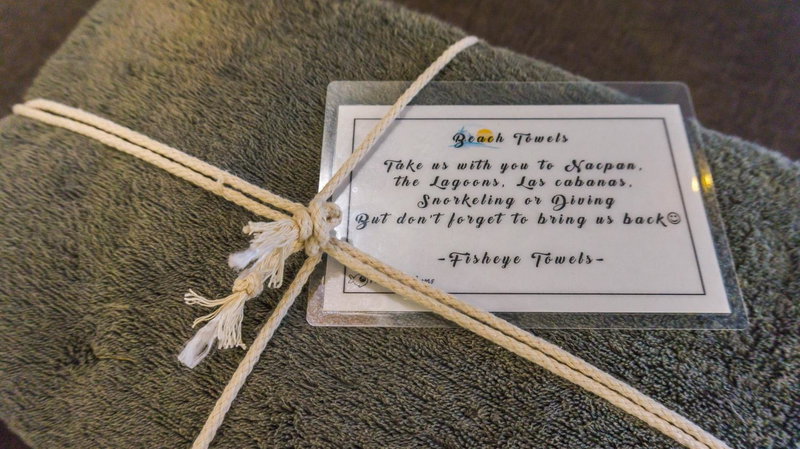 Beach Towels
Take us with you to Nacpan,
the Lagoons, Las cabanas,
Snorkeling or Diving
But don't forget to bring us back☺
-Fisheye Towels-